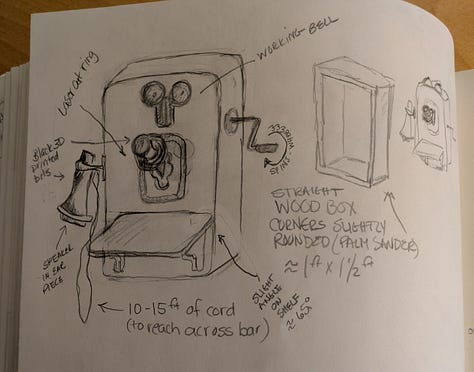 WORKING BELL
Laser cut ring
Black 3D
printed
bits
SPEAKER
IN EAR
PIECE
SPINS
STRAIGHT
WOOD BOX
CORNERS SLIGHTLY
ROUNDED (PALM SANDER)
≈ 1ft x 1½ ft
SLIGHT
ANGLE
ON
SHELF
≈ 65°
10-15ft of cord
(to reach across bar)